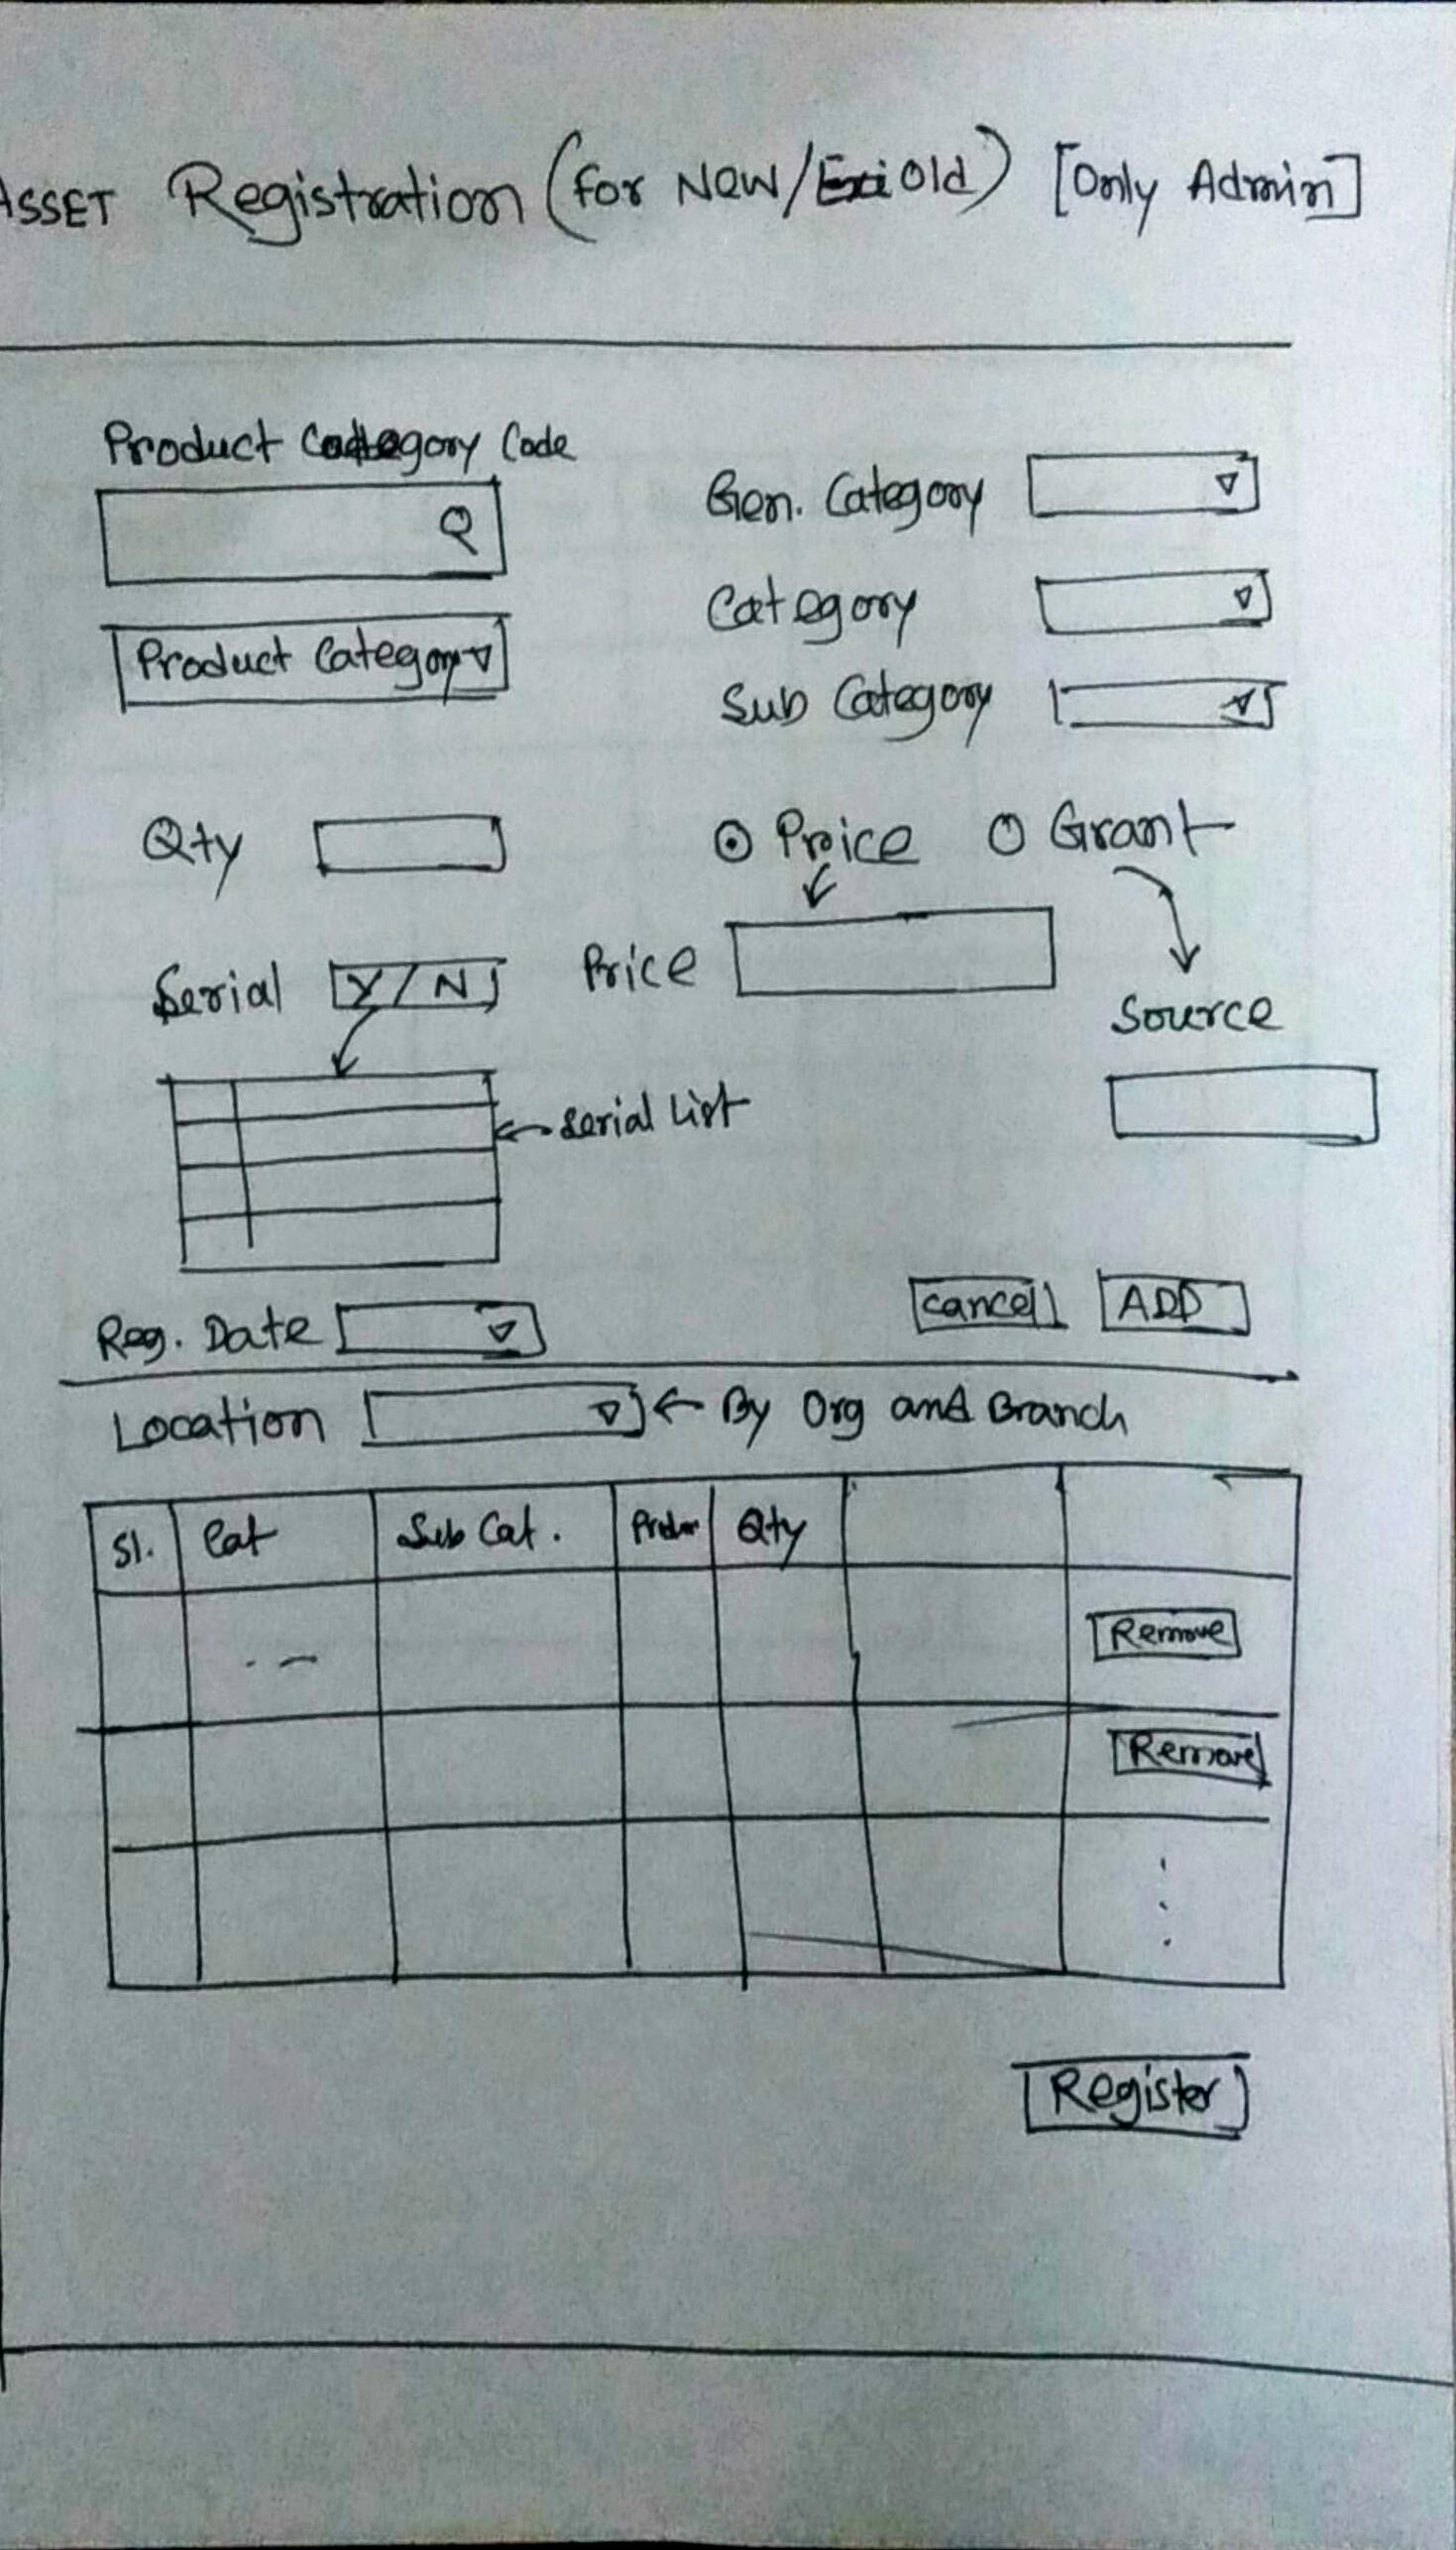 ASSET Registration (for New/Old) [Only Admin]
Product Category Code
Gen. Category
Category
Product Category
Sub Category
Qty
Price Grant
Serial Y/N
Price
Source
Serial List
Cancel ADD
Reg. Date
Location ← By Org and Branch
Sl. Cat Sub Cat. Qty
Remove
Remove
Register